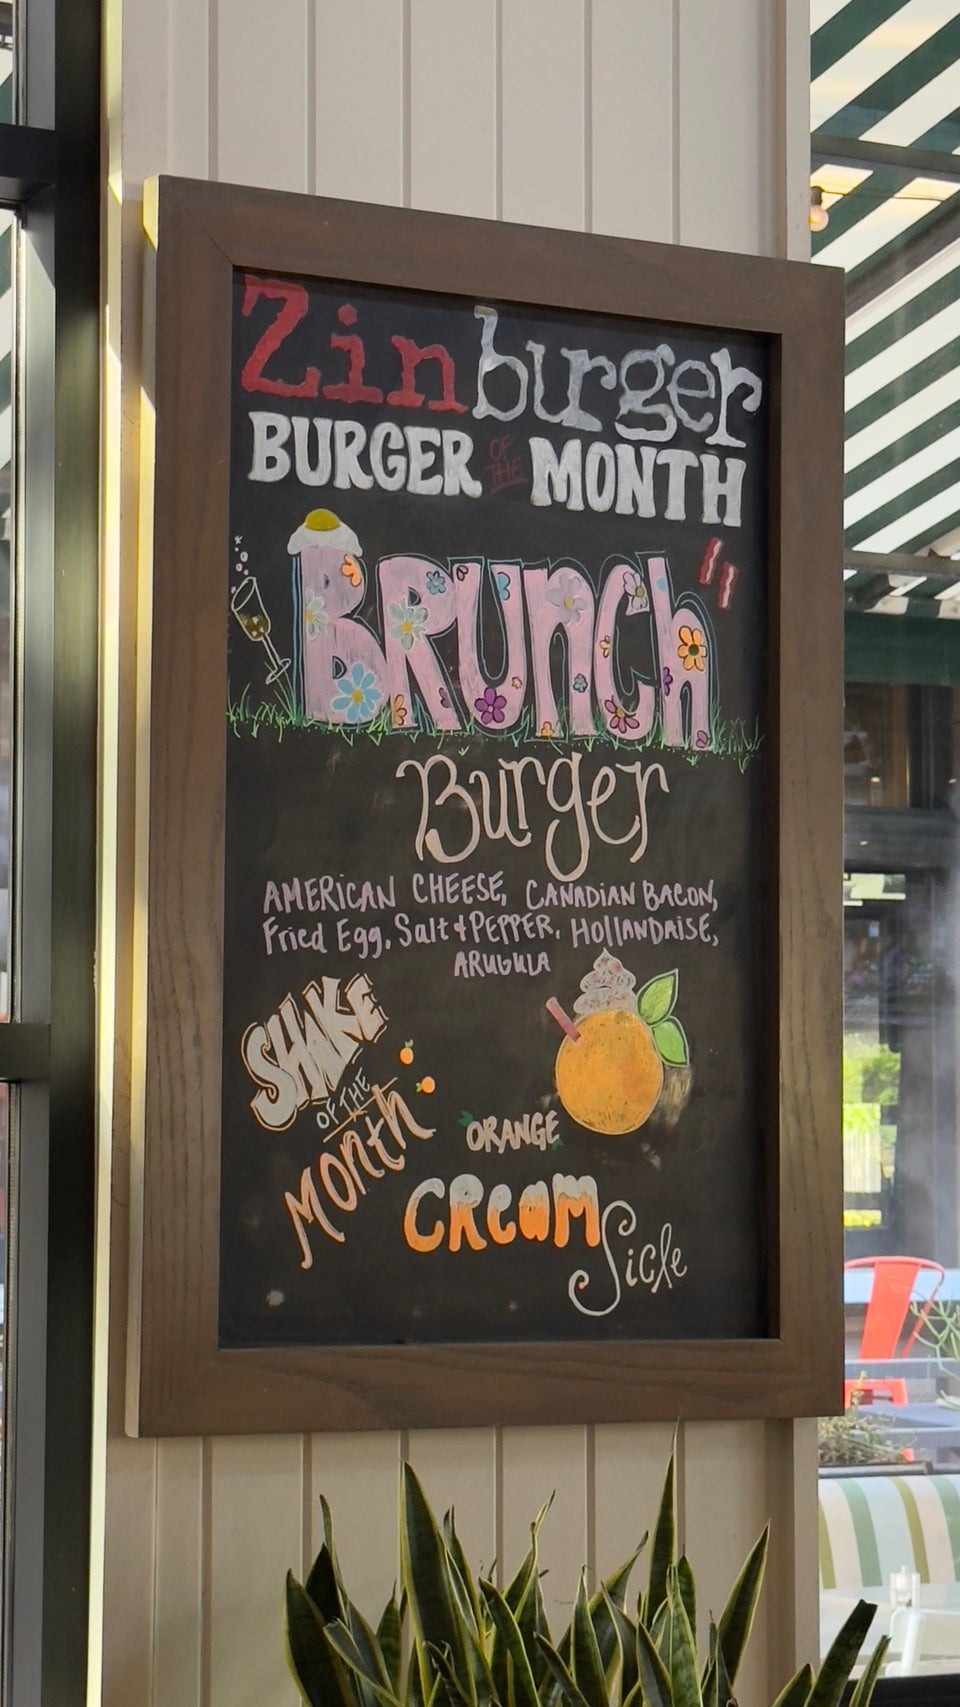 Zinburger
BURGER OF THE MONTH
BRUNCH
Burger
AMERICAN CHEESE, CANADIAN BACON,
Fried Egg, Salt & PEPPER, HOLLANDAISE,
ARUGULA
SHAKE
OF THE
Month
ORANGE
CREAM
Sicle